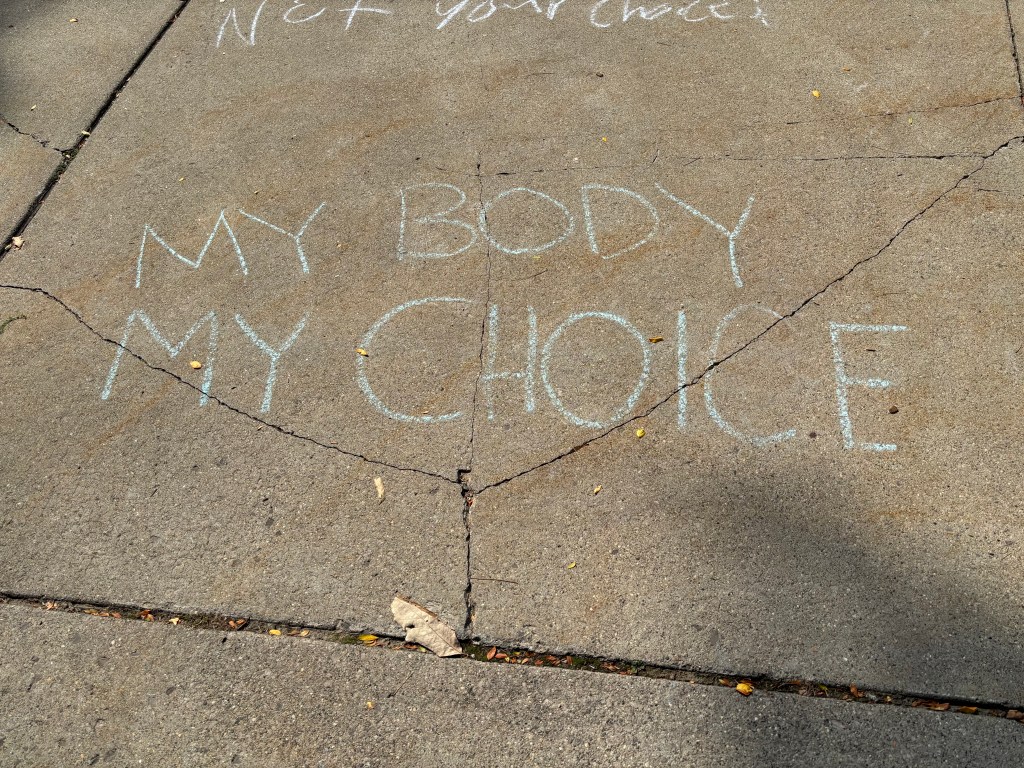 Not your choice!
MY BODY
MY CHOICE